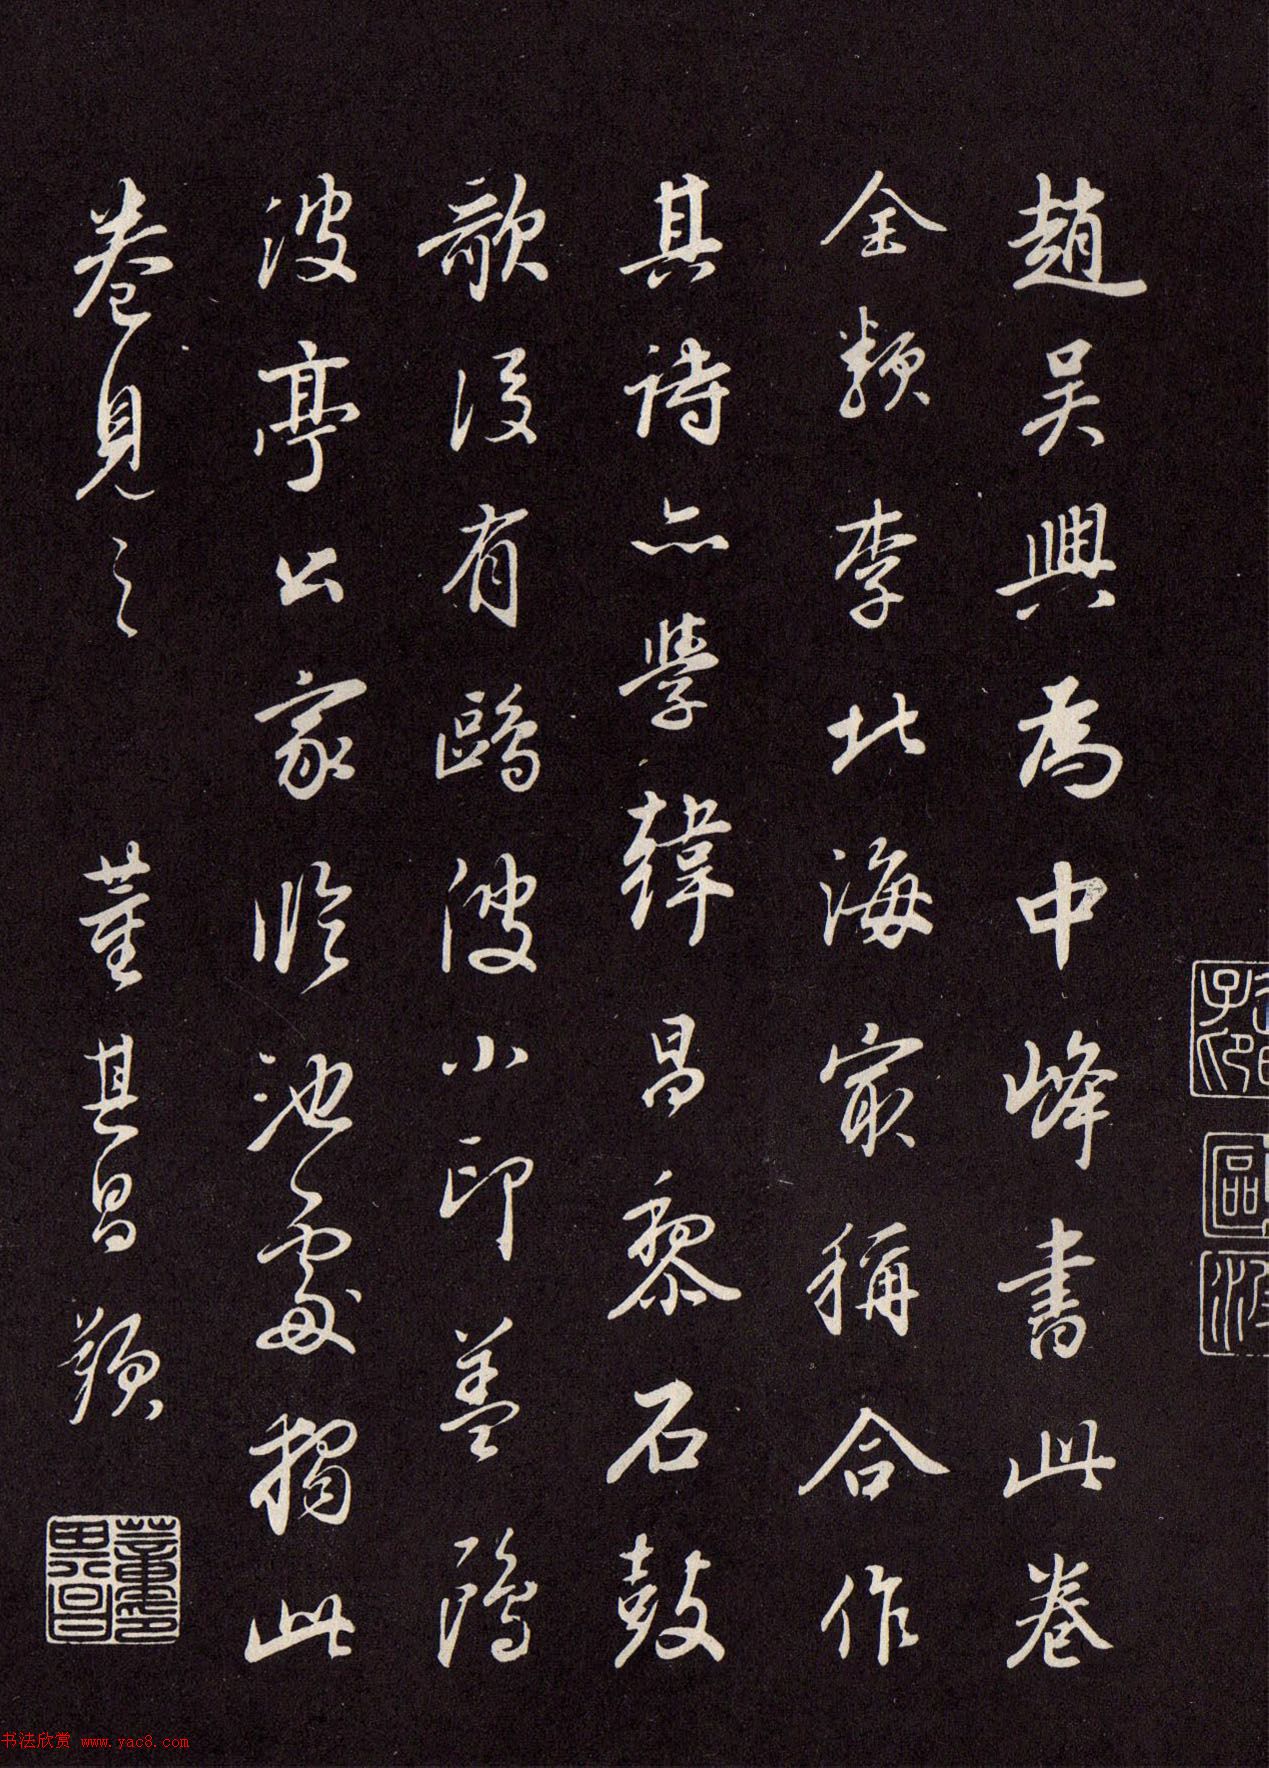 趙吳興為中峰書此卷
全類李北海家稱合作
其詩亦學韓昌黎石鼓
歌後有鷗波小印蓋鷗
波亭公家臨池處獨此
卷見之 董其昌題
書法欣赏 www.yac8.com